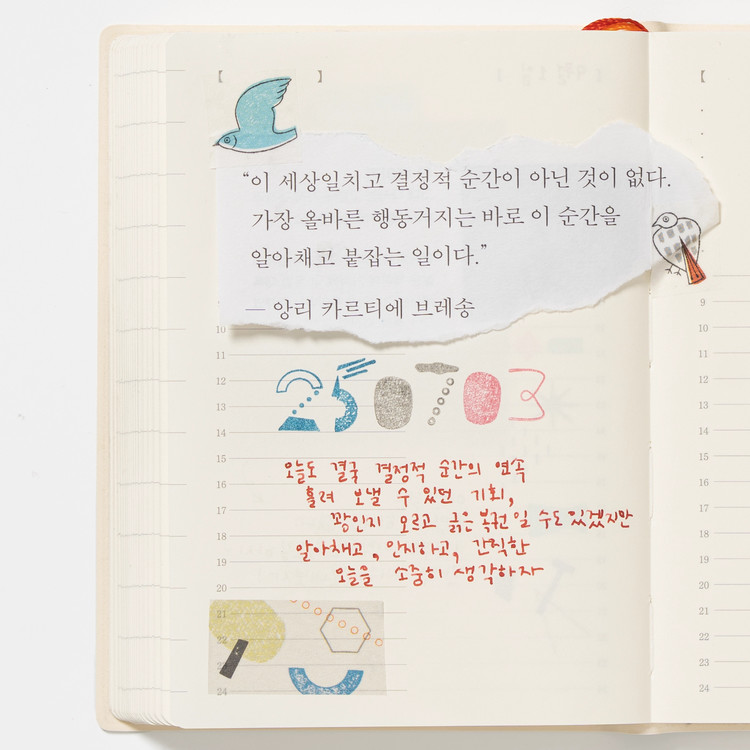 [ ]
“이 세상일치고 결정적 순간이 아닌 것이 없다.
가장 올바른 행동거지는 바로 이 순간을
알아채고 붙잡는 일이다.”
— 앙리 카르티에 브레송
250703
오늘도 결국 결정적 순간의 연속
흘려 보낼 수 있던 기회,
꽝인지 모르고 긁은 복권일 수도 있겠지만
알아채고, 인지하고, 간직한
오늘을 소중히 생각하자
10
11
12
13
14
15
16
17
18
19
20
21
22
23
24
[
9
10
11
12
13
14
15
16
17
18
19
20
21
22
23
24